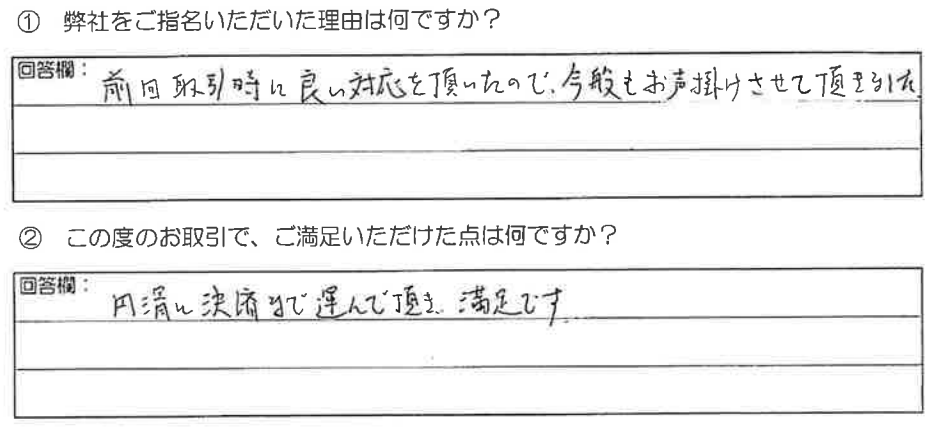 ① 弊社をご指名いただいた理由は何ですか？
回答欄： 前回取引時に良い対応を頂いたので、今般もお声掛けさせて頂きました
② この度のお取引で、ご満足いただけた点は何ですか？
回答欄： 円滑に決済まで運んで頂き、満足です